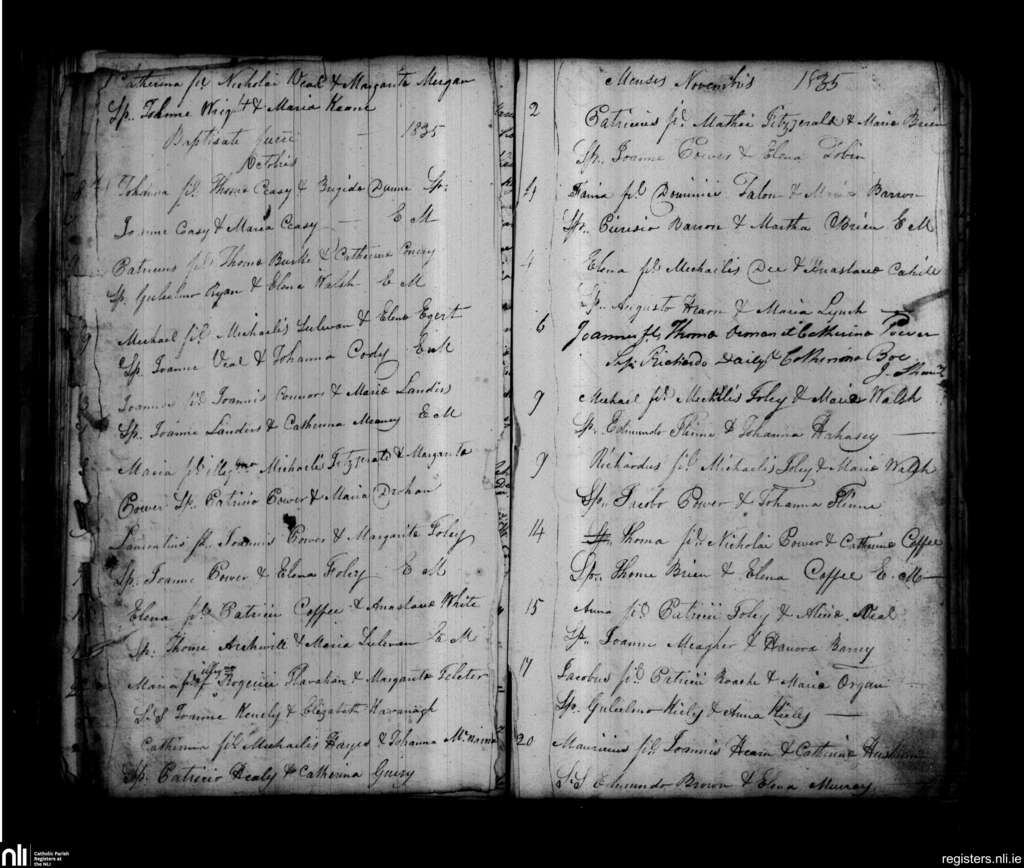 Catherina fil Nicholai Veal & Margarita Morgan
Sp. Johnne Wright & Maria Keane
Baptisate fuere — 1835
Octobris
Johanna fil. Thoma Ceasy & Brigida Dunne Sp.
Joanne Ceasy & Maria Ceasy — E M
Patricius fil. Thoma Burke & Catherina
Sp. Gulielmo Ryan & Elena Walsh E M
9 Michael fil Michaelis Sulevan & Elena Egert
Sp. Joanne Veal & Johanna Cody E M
Joannes fil Joannis Connors & Maria Landers
Sp. Joanne Landers & Catherina Meaney E M
Maria fil illegma Michaelis Fitzgerald & Margarita
Power Sp. Patricio Power & Maria Drohan
Laurentius fil. Joannis Power & Margarita Foley
Sp. Joanne Power & Elena Foley E M
Elena fil. Patricii Coffee & Anastasia White
Sp. Thoma & Maria Sulevan E M
Maria fil illegma Rogerii Flavahan & Margarita Teleter
S.S Joanne Kenely & Elizabeth Kavanagh
Catherina fil Michaelis Hayes & Johanna
Sp. Patricio Healy & Catherina Guiry
Menses Novembris 1835
2 Patricius fil. Mathei Fitzgerald & Maria Brien
Sp. Joanne Power & Elena Tobin
4 Maria fil. Dominici Talon & Maria Barron
Sp. Barron & Martha OBrien E M
4 Elena fil. Michailis Dee & Anastasia Cahill
Sp. Augusto Hearn & Maria Lynch
6 Joannes fil Thoma et Catherina Power
Sp. Rickardo Daily & Catherina Boe
J. Shan
9 Michael fil. Michaelis Foley & Maria Walsh
Sp. Edmundo Flinne & Johanna Hahasey —
9 Richardus fil. Michaelis Foley & Maria Walsh
Sp. Jacobo Power & Johanna Flinne
14 Thoma fil. Nicholai Power & Catherina Coffee
Sp. Thoma Brien & Elena Coffee E. M —
15 Anna fil. Patricii Foley & Alicia Neal
Sp. Joanne Meagher & Hanora Barry
17 Jacobus fil. Patricii Roache & Maria Organ
Sp. Gulielmo Kiely & Anna Kiely —
20 Mauricius fil. Joannis Hearn & Catherina
S.S Edmundo Brown & Elena Murray
nli Catholic Parish
Registers at
the NLI
registers.nli.ie